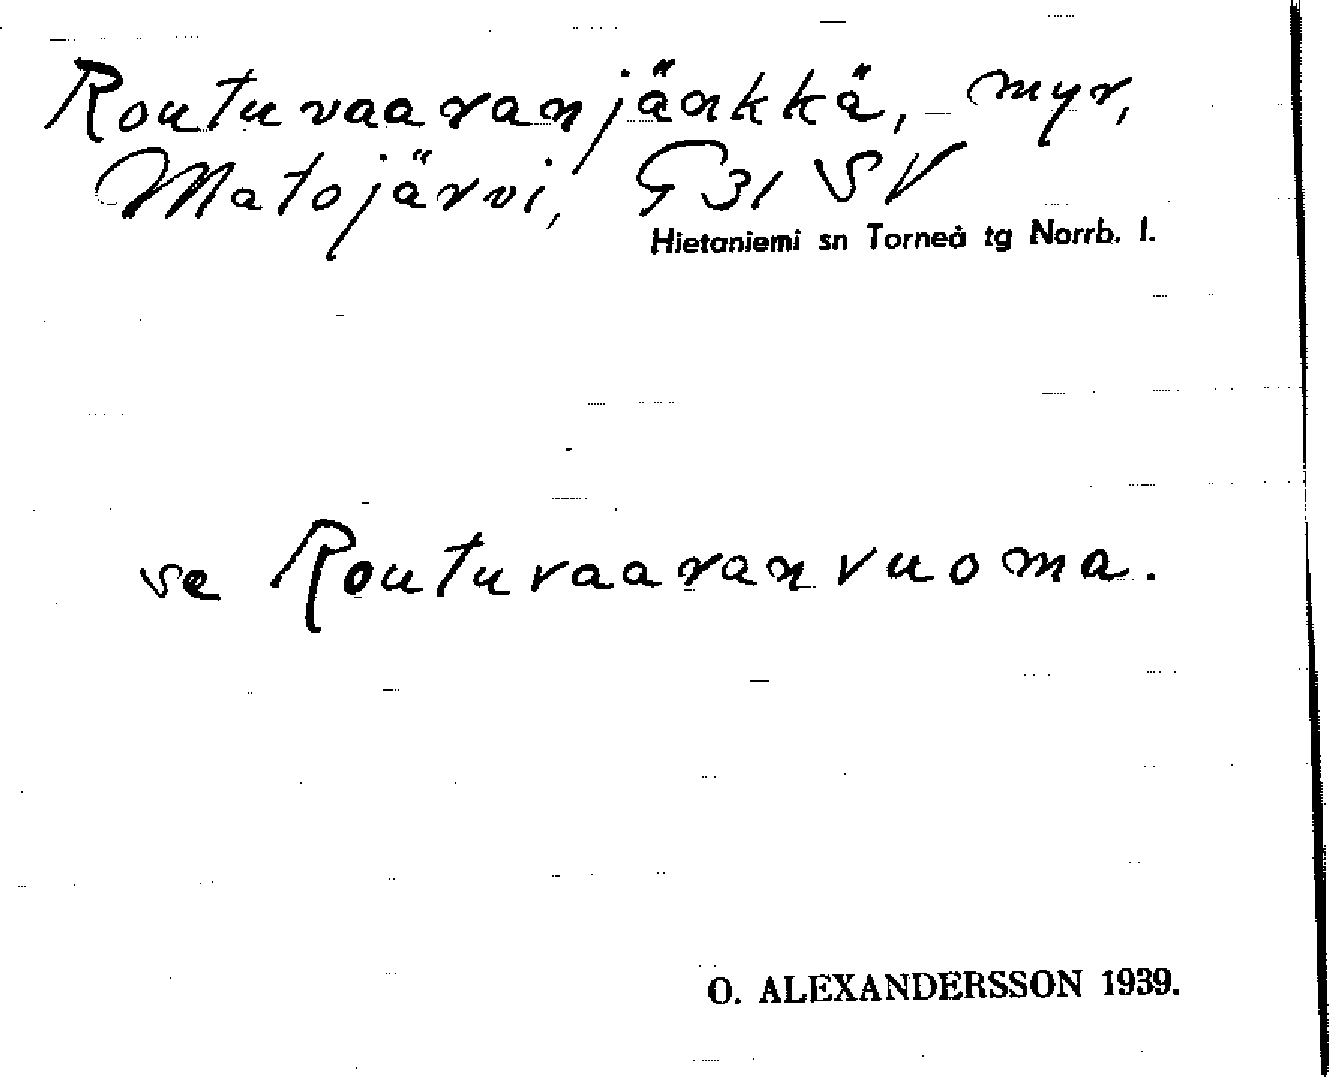 Routuvaaranjänkkä, myr,
Matojärvi, G 31 SV
Hietaniemi sn Torneå tg Norrb. l.
se Routuvaaranvuoma.
O. ALEXANDERSSON 1939.